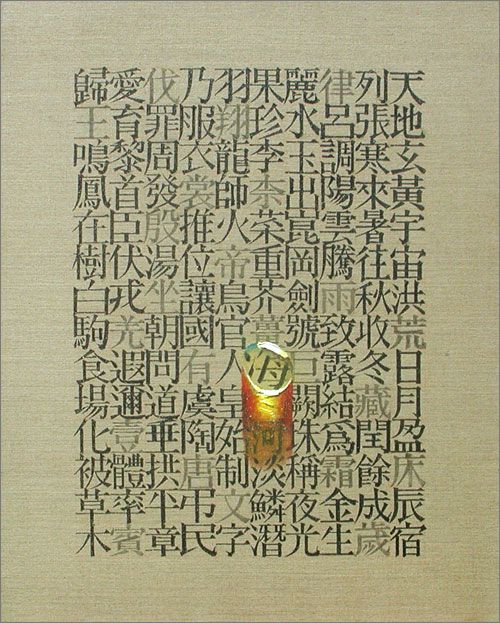 天地玄黃宇宙洪荒日月盈床辰宿
列張寒來暑往秋收冬藏閏餘成歲
律呂調陽雲騰雨致露結爲霜金生
麗水玉出崑岡劍號巨闕珠稱夜光
果珍李柰菜重芥薑海河淡鱗潛
羽翔龍師火帝鳥官人皇始制文字
乃服衣裳推位讓國有虞陶唐弔民
伐罪周發殷湯坐朝問道垂拱平章
愛育黎首臣伏戎羌遐邇壹體率賓
歸王鳴鳳在樹白駒食場化被草木